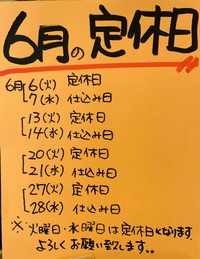 6月の定休日
6月 6(火) 定休日
7(水) 仕込み日
13(火) 定休日
14(水) 仕込み日
20(火) 定休日
21(水) 仕込み日
27(火) 定休日
28(水) 仕込み日
※火曜日・水曜日は定休日となります
よろしくお願い致します..